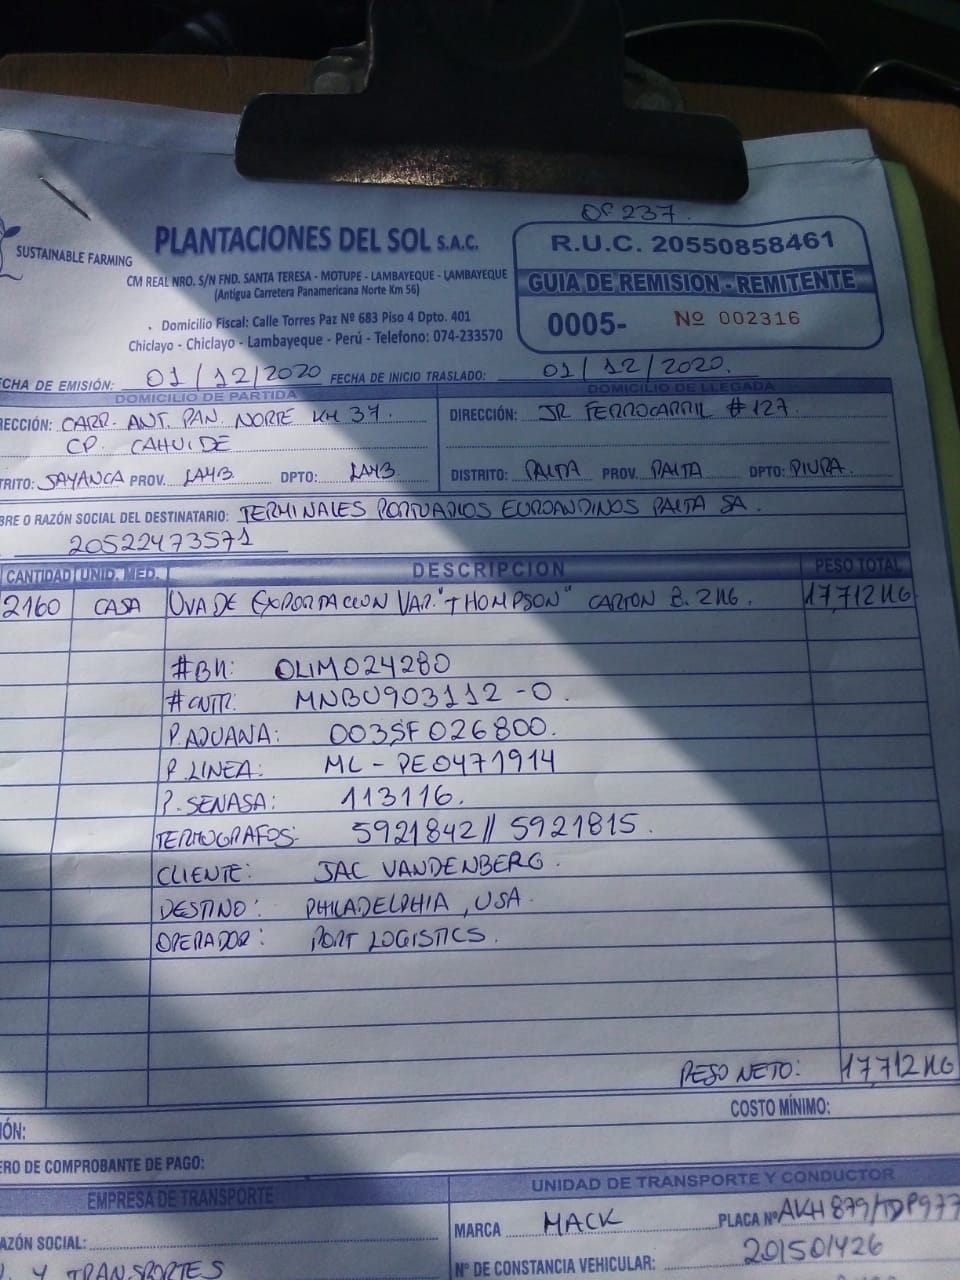 OF 237.
SUSTAINABLE FARMING
PLANTACIONES DEL SOL S.A.C.
CM REAL NRO. S/N FND. SANTA TERESA - MOTUPE - LAMBAYEQUE - LAMBAYEQUE
(Antigua Carretera Panamericana Norte Km 56)
Domicilio Fiscal: Calle Torres Paz Nº 683 Piso 4 Dpto. 401
Chiclayo - Chiclayo - Lambayeque - Perú - Telefono: 074-233570
R.U.C. 20550858461
GUIA DE REMISION - REMITENTE
0005- Nº 002316
ECHA DE EMISIÓN: 01/12/2020 FECHA DE INICIO TRASLADO: 01/12/2020.
DOMICILIO DE PARTIDA
RECCIÓN: CARR. ANT. PAN. NORTE KM 37.
CP. CAHUIDE
TRITO: JAYANCA PROV. LAMB DPTO: LAMB
DOMICILIO DE LLEGADA
DIRECCIÓN: JR FERROCARRIL # 127.
DISTRITO: PAITA PROV. PAITA DPTO: PIURA.
BRE O RAZÓN SOCIAL DEL DESTINATARIO: TERMINALES PORTUARIOS EUROANDINOS PAITA SA.
20522473571
CANTIDAD UNID. MED. DESCRIPCION PESO TOTAL
2160 CAJA UVA DE EXPORTACCION VAR. "THOMPSON" CARTON 8.2KG. 17,712 KG
#BK: OLIM024280
#CNTR: MNBU903112-0.
P.ADUANA: 003SF026800.
P.LINEA: ML-PE0471914
P.SENASA: 113116.
TERMOGRAFOS: 5921842// 5921815.
CLIENTE: JAC VANDENBERG.
DESTINO: PHILADELPHIA, USA.
OPERADOR: PORT LOGISTICS.
PESO NETO: 17,712 KG
COSTO MÍNIMO:
IÓN:
ERO DE COMPROBANTE DE PAGO:
EMPRESA DE TRANSPORTE
AZÓN SOCIAL:
Y TRANSPORTES
UNIDAD DE TRANSPORTE Y CONDUCTOR
MARCA MACK PLACA Nº AKH879/TDP977
Nº DE CONSTANCIA VEHICULAR: 201501426